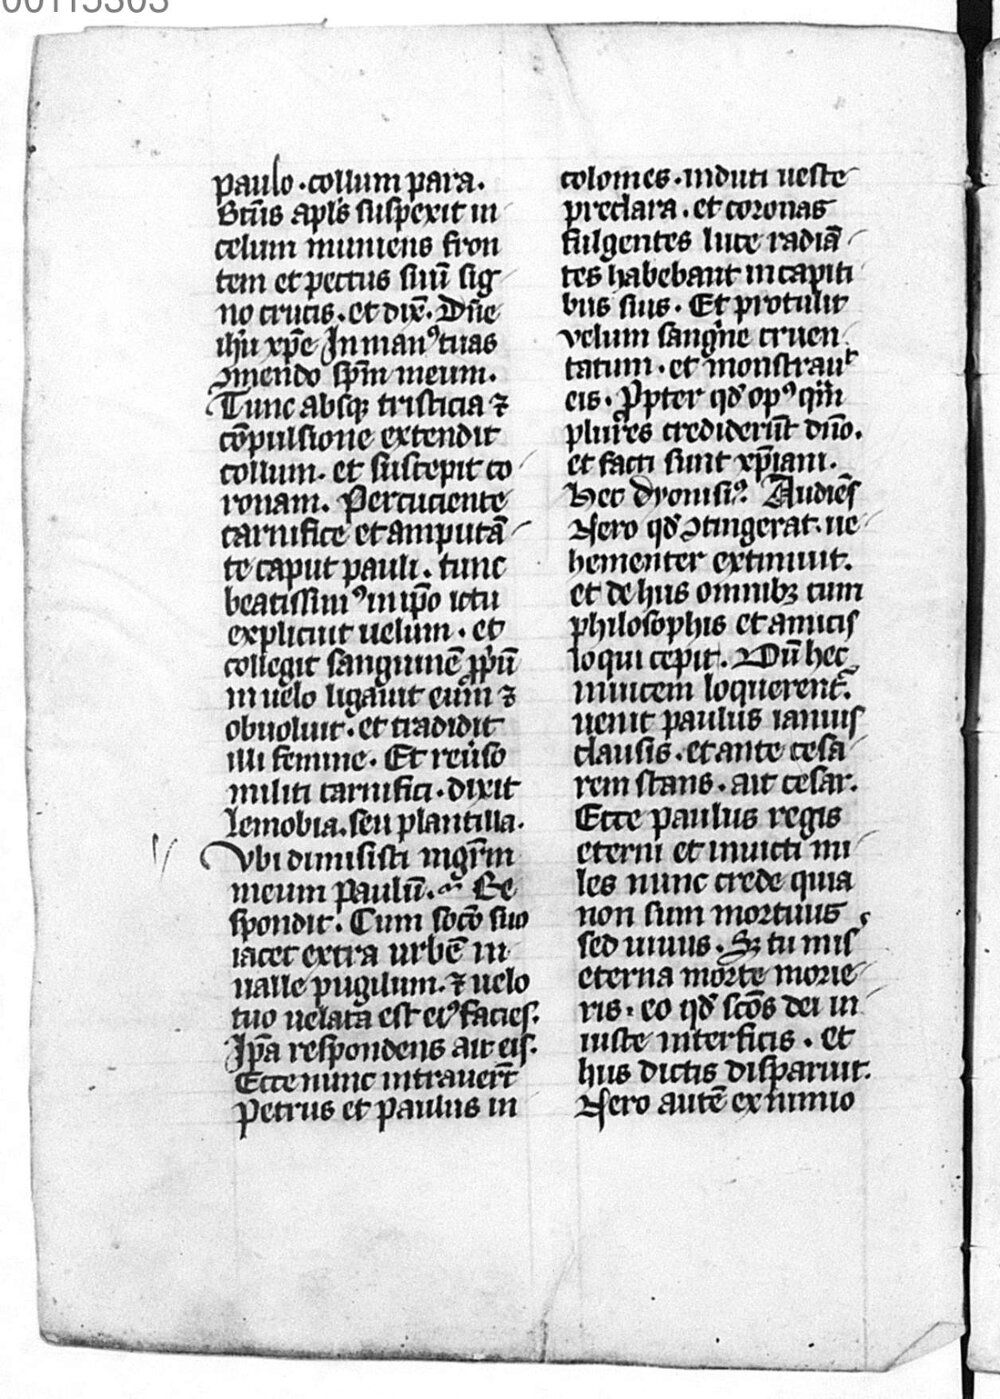 00115303
paulo · collum para.
Btūs apl's suspexit in
celum muniens fron
tem et pectus suū sig
no crucis · et dix̄ · Dn̄e
ihū xp̄e In manꝰ tuas
ꝯmendo sp̄m meum.
Tunc absqꝫ tristicia ⁊
cōpulsione extendit
collum · et suscepit co
ronam. Percuciente
carnifice et amputā
te caput pauli. tunc
beatissimꝰ in ip̄o ictu
explicuit uelum · et
collegit sanguinē ꝓpⁱū
in uelo ligauit eum ⁊
obuoluit · et tradidit
illi femine. Et reūso
militi carnifici · dixit
lemobia. seu plantilla.
Vbi dimisisti mgr̄m
meum Paulū. Re
spondit. Cum socō suo
iacet extra urbē in
ualle pugilum. ⁊ uelo
tuo uelata est eiꝰ facies.
Ip̄a respondens ait eis.
Ecce nunc intrauerūt
Petrus et paulus in
colomes · induti ueste
preclara · et coronas
fulgentes luce radiā
tes habebant in capiti
bus suis. Et protulit
velum sangⁱne cruen
tatum · et monstrauᵗ
eis. Ꝓpter qd̄ opꝰ qm̄
plures crediderūt dn̄o.
et facti sunt xp̄iani.
Hec dyonisiꝰ. Audiēs
Nero qd̄ ꝯtingerat. ue
hementer extimuit.
et de hiis omnibꝫ cum
philosophis et amicis
loqui cepit. Dū hec
inuicem loquerent̄.
uenit paulus ianuis
clausis · et ante cesa
rem stans · ait cesar.
Ecce paulus regis
eterni et inuicti mi
les nunc crede quia
non sum mortuus
sed uiuus. Sꝫ tu mis
eterna morte morie
ris · eo qd̄ scōs dei in
iuste interficis · et
hiis dictis disparuit.
Nero autē ex nimio